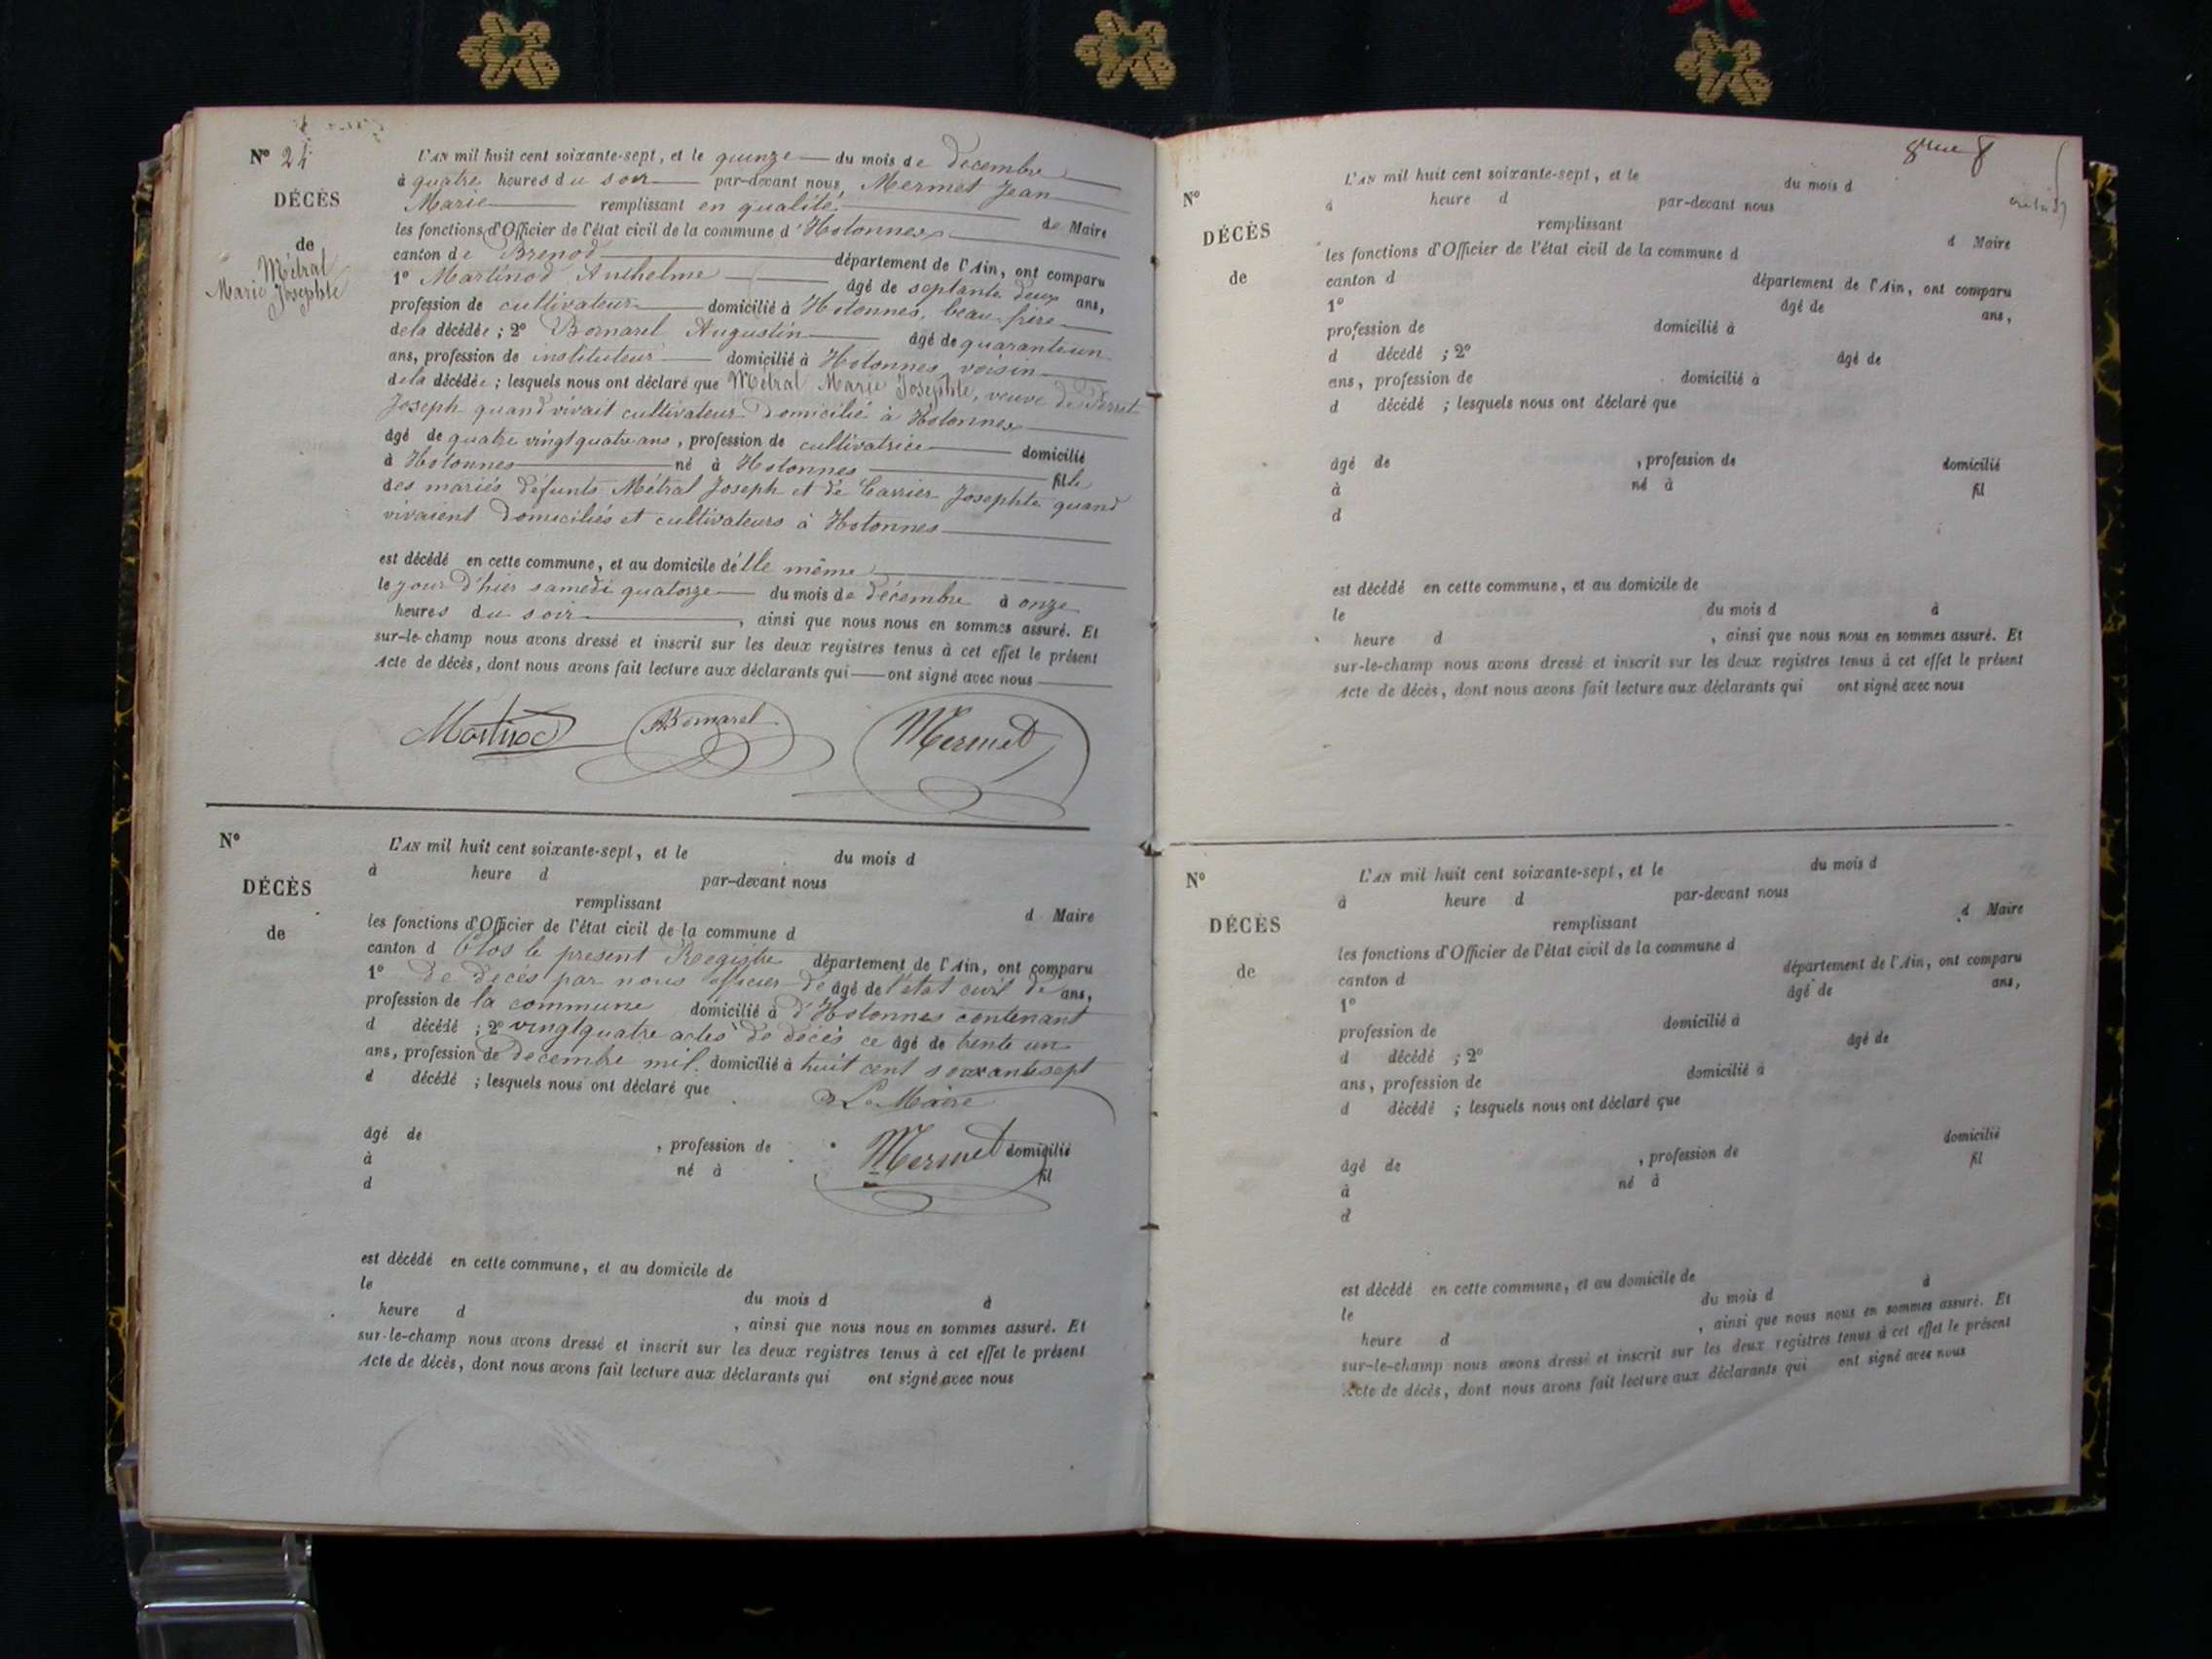 Nº 24
DÉCÈS
de
Métral
Marie Josephte
L'AN mil huit cent soixante-sept, et le quinze du mois de Décembre
à quatre heures du soir par-devant nous, Mermet Jean
Marie remplissant en qualité de Maire
les fonctions d'Officier de l'état civil de la commune d'Hotonnes
canton de Brenod département de l'Ain, ont comparu
1º Martinod Anthelme âgé de septante deux ans,
profession de cultivateur domicilié à Hotonnes, beau-frère
de la décédée ; 2º Bornarel Augustin âgé de quarante un
ans, profession de instituteur domicilié à Hotonnes, voisin
de la décédée ; lesquels nous ont déclaré que Métral Marie Josephte, veuve de Perret
Joseph quand vivait cultivateur domicilié à Hotonnes
âgé de quatre vingt quatre ans, profession de cultivatrice domicilié
à Hotonnes né à Hotonnes fille
des mariés défunts Métral Joseph et de Carrier Josephte quand
vivaient domiciliés et cultivateurs à Hotonnes
est décédé en cette commune, et au domicile d'elle même
le jour d'hier samedi quatorze du mois de décembre à onze
heures du soir, ainsi que nous nous en sommes assuré. Et
sur-le-champ nous avons dressé et inscrit sur les deux registres tenus à cet effet le présent
Acte de décès, dont nous avons fait lecture aux déclarants qui ont signé avec nous
Martinod Bornarel Mermet
Nº
DÉCÈS
de
L'AN mil huit cent soixante-sept, et le du mois d
à heure d par-devant nous
remplissant d Maire
les fonctions d'Officier de l'état civil de la commune d
canton d Clos le present Registre département de l'Ain, ont comparu
1º de décès par nous officier de âgé de l'état civil de ans,
profession de la commune domicilié à d'Hotonnes contenant
d décédé ; 2º vingt quatre actes de décès ce âgé de trente un
ans, profession de decembre mil domicilié à huit cent soixante sept
d décédé ; lesquels nous ont déclaré que Le Maire
âgé de , profession de Mermet domicilié
à né à fil
d
est décédé en cette commune, et au domicile de
le du mois d à
heure d , ainsi que nous nous en sommes assuré. Et
sur-le-champ nous avons dressé et inscrit sur les deux registres tenus à cet effet le présent
Acte de décès, dont nous avons fait lecture aux déclarants qui ont signé avec nous
Nº
DÉCÈS
de
L'AN mil huit cent soixante-sept, et le du mois d
à heure d par-devant nous
remplissant d Maire
les fonctions d'Officier de l'état civil de la commune d
canton d département de l'Ain, ont comparu
1º âgé de ans,
profession de domicilié à
d décédé ; 2º âgé de
ans, profession de domicilié à
d décédé ; lesquels nous ont déclaré que
âgé de , profession de domicilié
à né à fil
d
est décédé en cette commune, et au domicile de
le du mois d à
heure d , ainsi que nous nous en sommes assuré. Et
sur-le-champ nous avons dressé et inscrit sur les deux registres tenus à cet effet le présent
Acte de décès, dont nous avons fait lecture aux déclarants qui ont signé avec nous
Nº
DÉCÈS
de
L'AN mil huit cent soixante-sept, et le du mois d
à heure d par-devant nous
remplissant d Maire
les fonctions d'Officier de l'état civil de la commune d
canton d département de l'Ain, ont comparu
1º âgé de ans,
profession de domicilié à
d décédé ; 2º âgé de
ans, profession de domicilié à
d décédé ; lesquels nous ont déclaré que
âgé de , profession de domicilié
à né à fil
d
est décédé en cette commune, et au domicile de
le du mois d à
heure d , ainsi que nous nous en sommes assuré. Et
sur-le-champ nous avons dressé et inscrit sur les deux registres tenus à cet effet le présent
Acte de décès, dont nous avons fait lecture aux déclarants qui ont signé avec nous